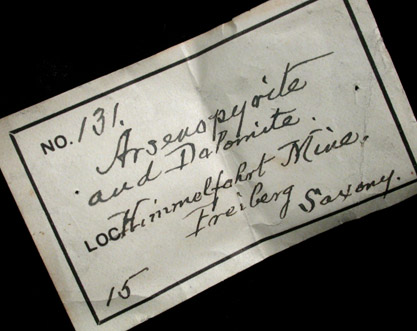 NO. 131.
Arsenopyrite
and Dolomite.
LOC. Himmelfahrt Mine.
Freiberg Saxony.
15